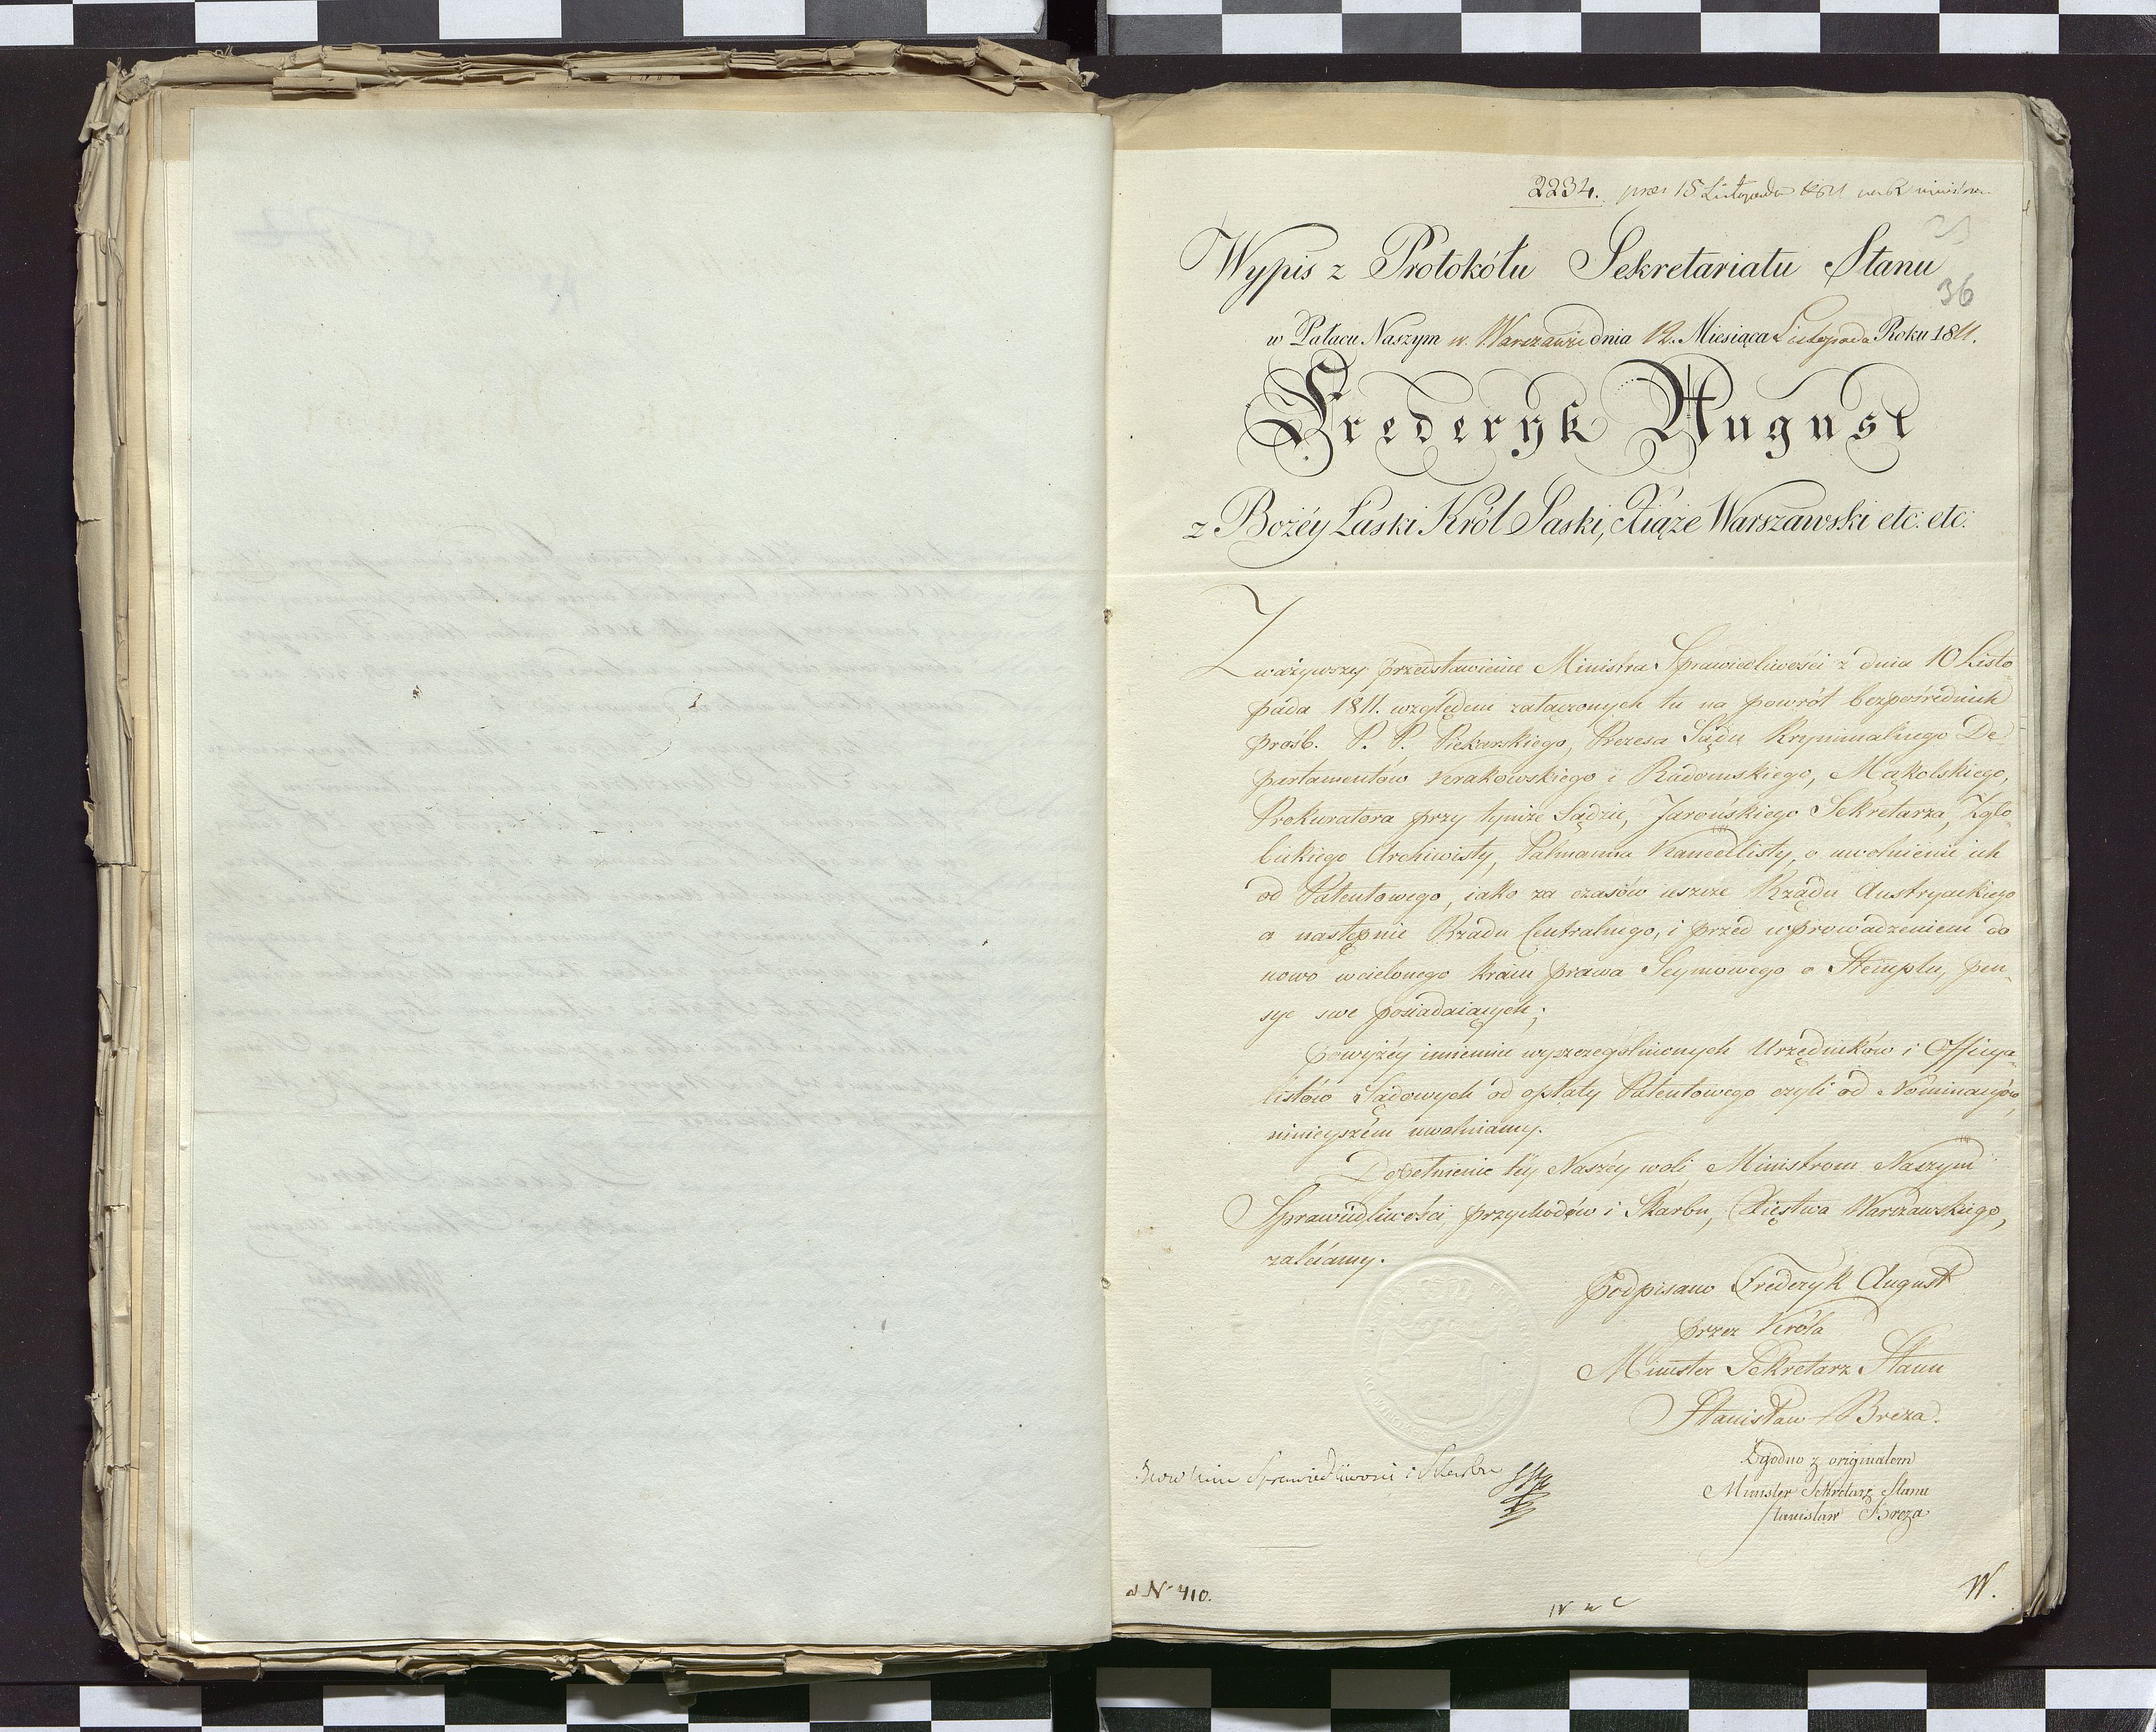 2234. prs 15 Listopada 1811
Wypis z Protokółu Sekretariatu Stanu
36
w Pałacu Naszym w Warszawie dnia 12. Miesiąca Listopada Roku 1811.
Frederyk August
z Bożéy Łaski Król Saski, Xiąże Warszawski etc: etc:
Zważywszy przedstawienie Ministra Sprawiedliwości z dnia 10 Listo
pada 1811. względem załączonych tu na powrót bezpośrednich
prośb. P. P. Piekarskiego, Prezesa Sądu Kryminalnego De
partamentów Krakowskiego i Radomskiego, Mąkolskiego,
Prokuratora przy tymże Sądzie, Jarońskiego Sekretarza, Zglo
bickiego Archiwisty, Palmanna Kancellisty, o uwolnienie ich
od Patentowego, iako za czasów ieszcze Rządu Austryackiego
a następnie Rządu Centralnego, i przed wprowadzeniem do
nowo wcielonego kraiu prawa Seymowego o Stemplu, pen-
sye swe posiadaiących;
powyżéy imiennie wyszczególnionych Urzędników i Officya
listów Sądowych od opłaty Patentowego czyli od Nominacyów,
ninieyszém uwalniamy.
Dopełnienie téy Naszéy woli Ministrom Naszym
Sprawiedliwości, przychodów i Skarbu, Xięstwa Warszawskiego,
zalecamy.
Podpisano Frederyk August
przez Króla
Minister Sekretarz Stanu
Stanisław Breza.
Zgodno z originałem
Minister Sekretarz Stanu
Stanisław Breza
Sprawiedliwości i Skarbu
d N 410.
W.